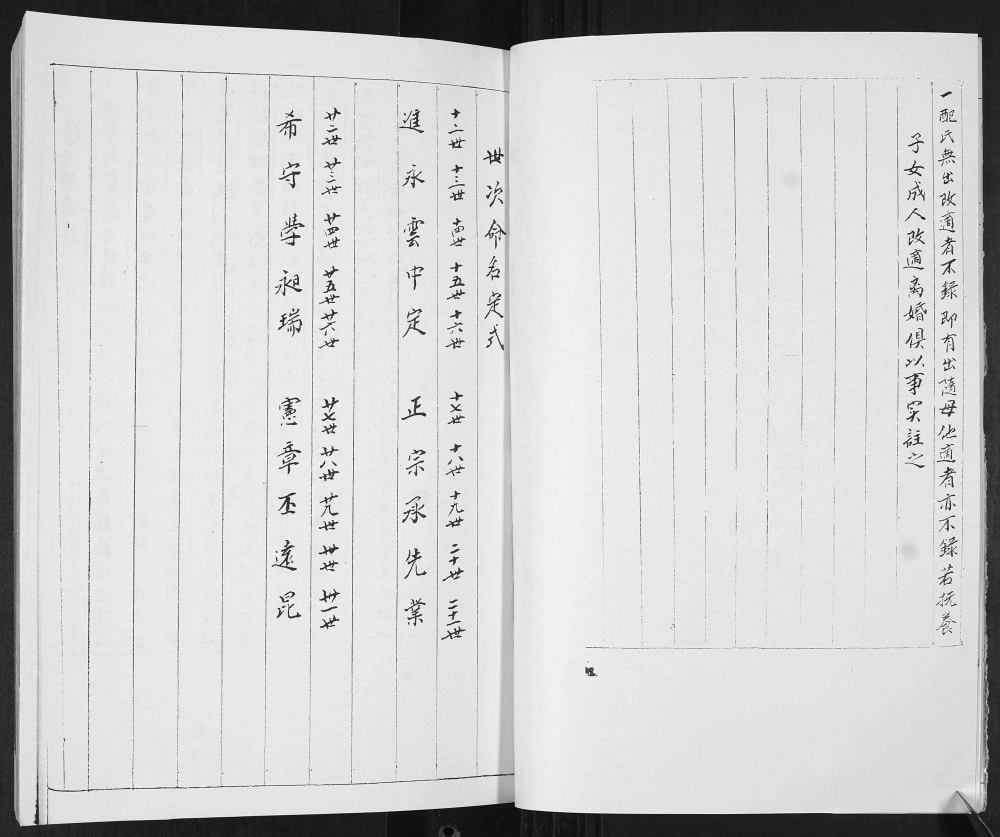 一配氏無出改適者不錄即有出隨母他適者亦不錄若抚養
子女成人改適离婚俱以事实註之
世次命名定式
十二世 十三世 十四世 十五世 十六世 十七世 十八世 十九世 二十世 二十一世
進永雲中定 正宗承先業
廿二世 廿三世 廿四世 廿五世 廿六世 廿七世 廿八世 廿九世 卅世 卅一世
希守學昶瑞 憲章丕遠昆